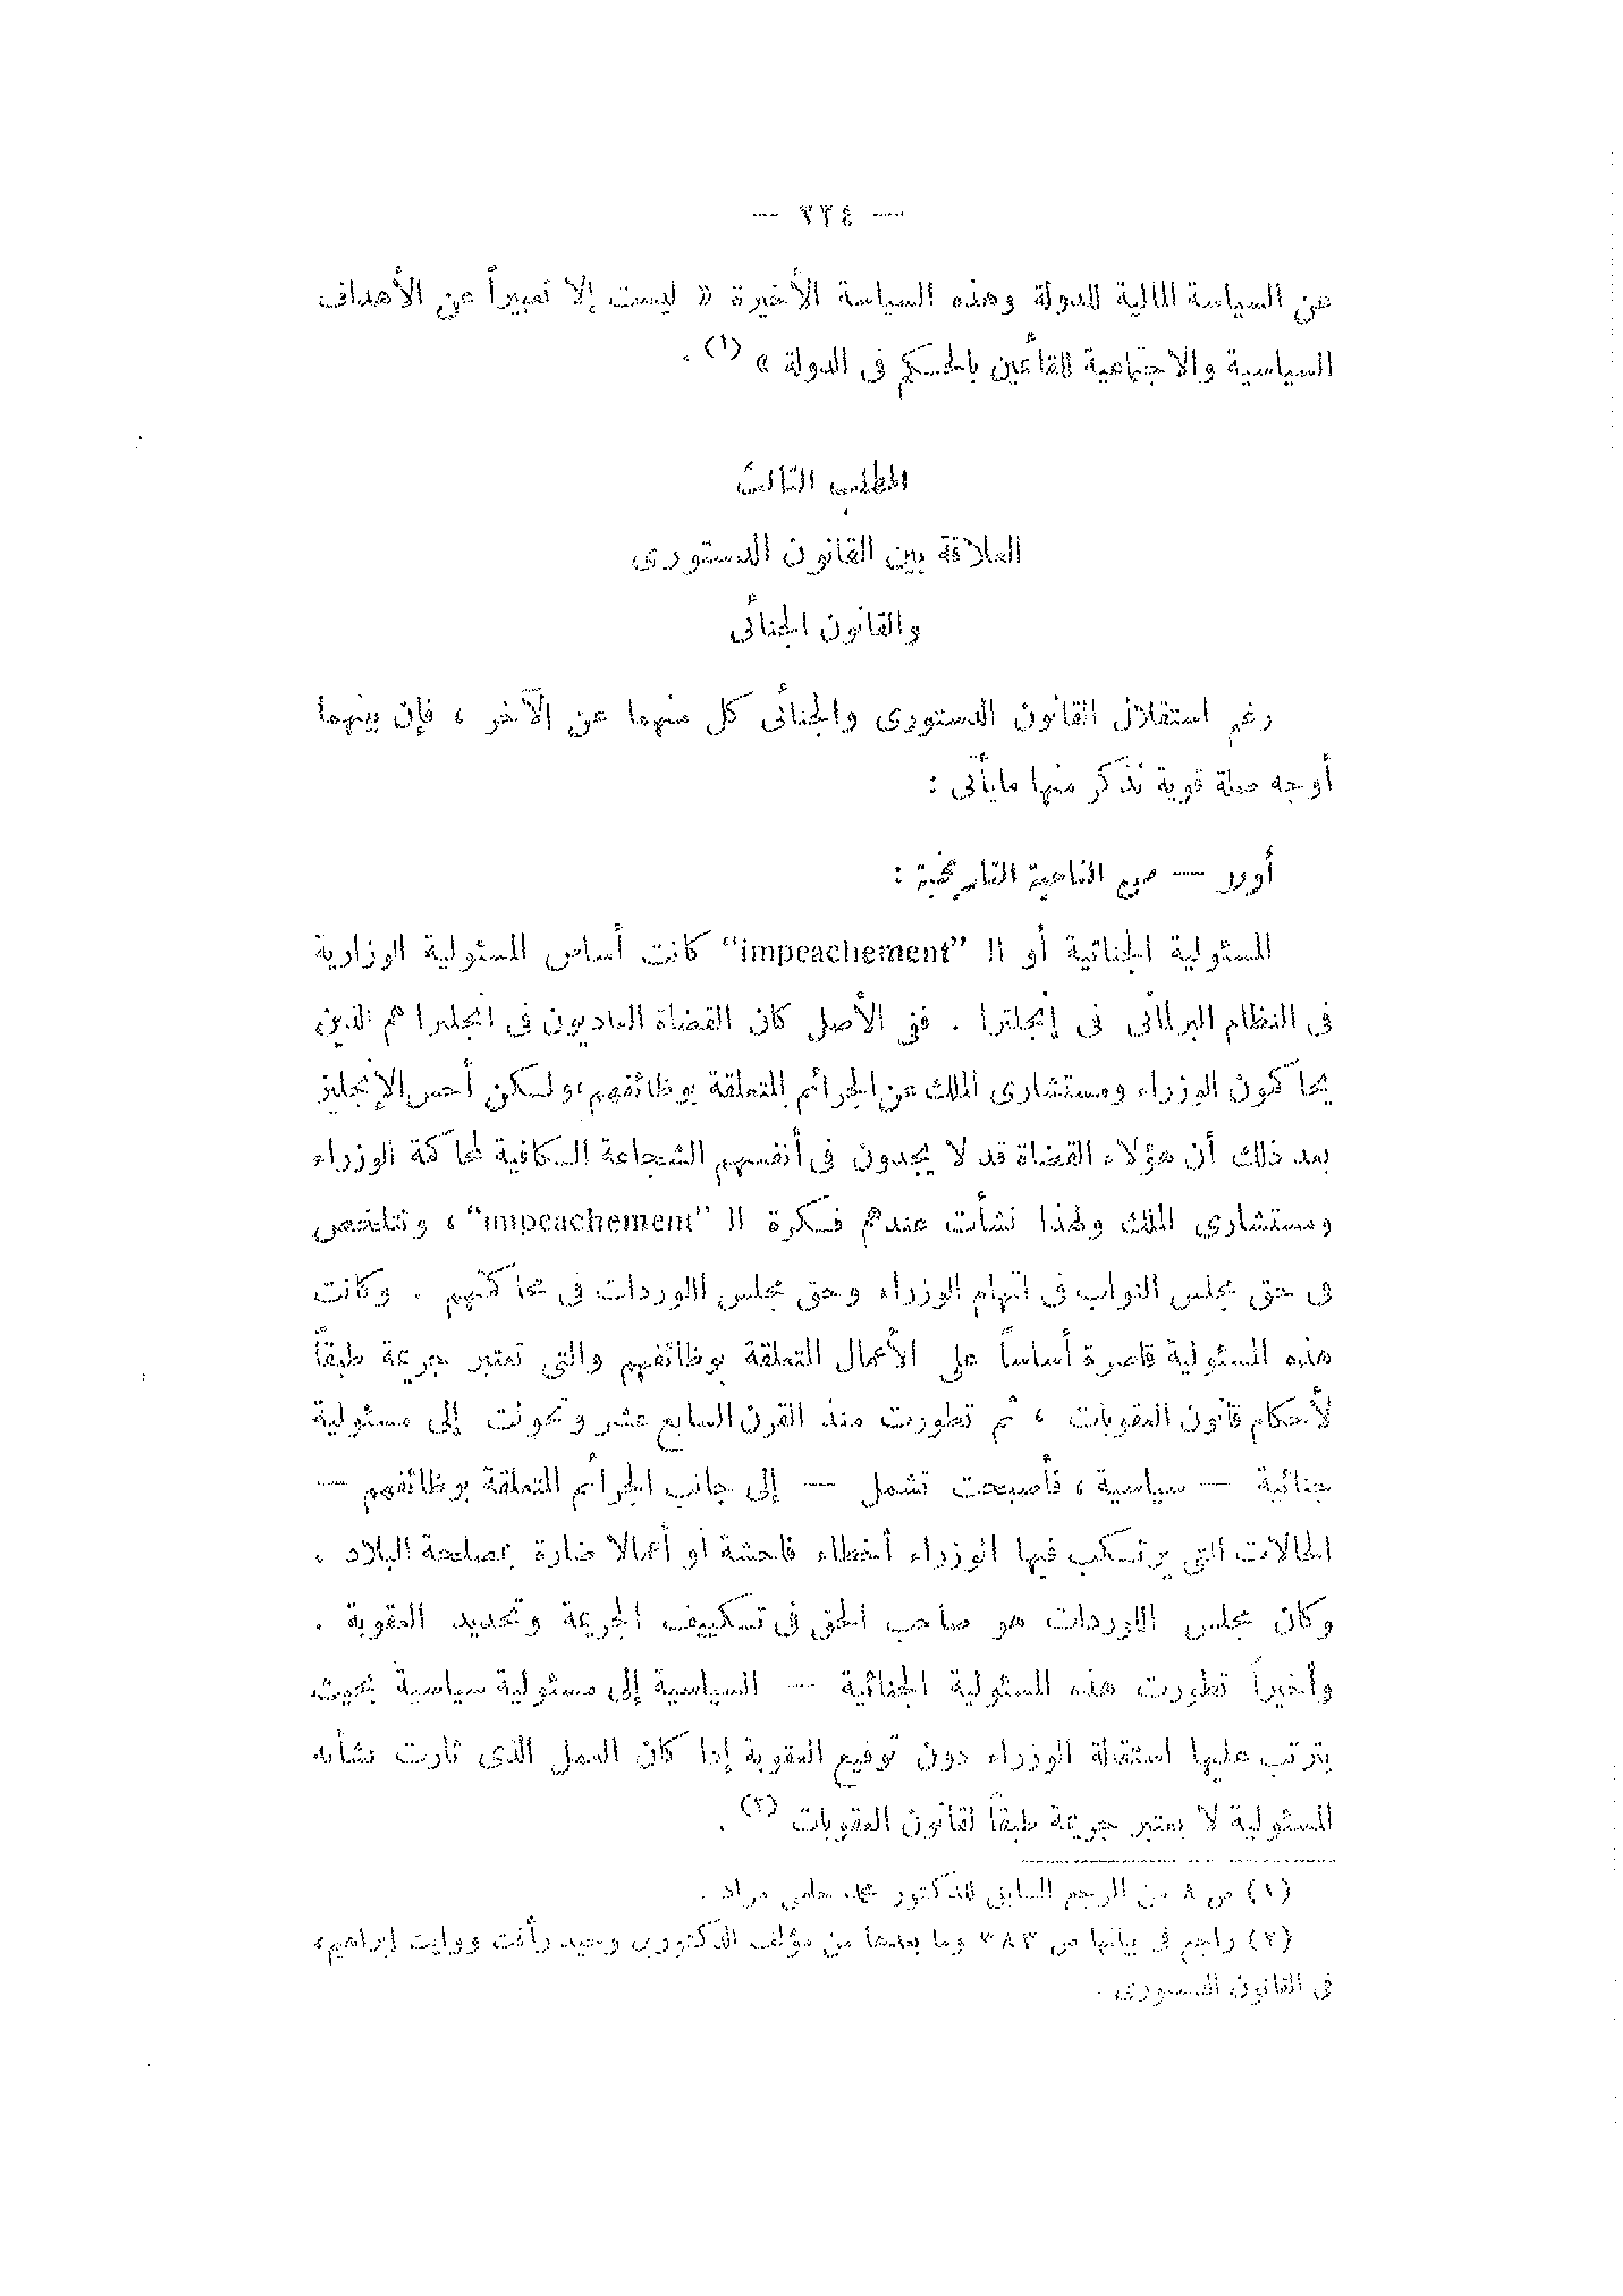 — ٣٢٤ —
عن السياسة المالية للدولة وهذه السياسة الأخيرة « ليست إلا تعبيراً عن الأهداف
السياسية والاجتماعية للقائمين بالحكم فى الدولة » (١) .
المطلب الثالث
العلاقة بين القانون الدستورى
والقانون الجنائى
رغم استقلال القانون الدستورى والجنائى كل منهما عن الآخر ، فإن بينهما
أوجه صلة قوية نذكر منها مايأتى :
أولا — من الناحية التاريخية :
المسئولية الجنائية أو الـ "impeachement" كانت أساس المسئولية الوزارية
فى النظام البرلمانى فى إنجلترا . ففى الأصل كان القضاة العاديون فى انجلترا هم الذين
يحاكمون الوزراء ومستشارى الملك عن الجرائم المتعلقة بوظائفهم،ولكن أحس الإنجليز
بعد ذلك أن هؤلاء القضاة قد لا يجدون فى أنفسهم الشجاعة الكافية لمحاكمة الوزراء
ومستشارى الملك ولهذا نشأت عندهم فكرة الـ "impeachement" ، وتتلخص
فى حق مجلس النواب فى اتهام الوزراء وحق مجلس اللوردات فى محاكمتهم . وكانت
هذه المسئولية قاصرة أساساً على الأعمال المتعلقة بوظائفهم والتى تعتبر جريمة طبقاً
لأحكام قانون العقوبات ، ثم تطورت منذ القرن السابع عشر وتحولت إلى مسئولية
جنائية — سياسية ، فأصبحت تشمل — إلى جانب الجرائم المتعلقة بوظائفهم —
الحالات التى يرتكب فيها الوزراء أخطاء فاحشة أو أعمالا ضارة بمصلحة البلاد .
وكان مجلس اللوردات هو صاحب الحق فى تكييف الجريمة وتحديد العقوبة .
وأخيراً تطورت هذه المسئولية الجنائية — السياسية إلى مسئولية سياسية بحيث
يترتب عليها استقالة الوزراء دون توقيع العقوبة إذا كان العمل الذى ثارت بشأنه
المسئولية لا يعتبر جريمة طبقاً لقانون العقوبات (٢) .
(١) ص ٨ من المرجع السابق للدكتور محمد حلمى مراد .
(٢) راجع فى بيانها ص ٣٨٣ وما بعدها من مؤلف الدكتورين وحيد رأفت ووايت إبراهيم،
فى القانون الدستورى .